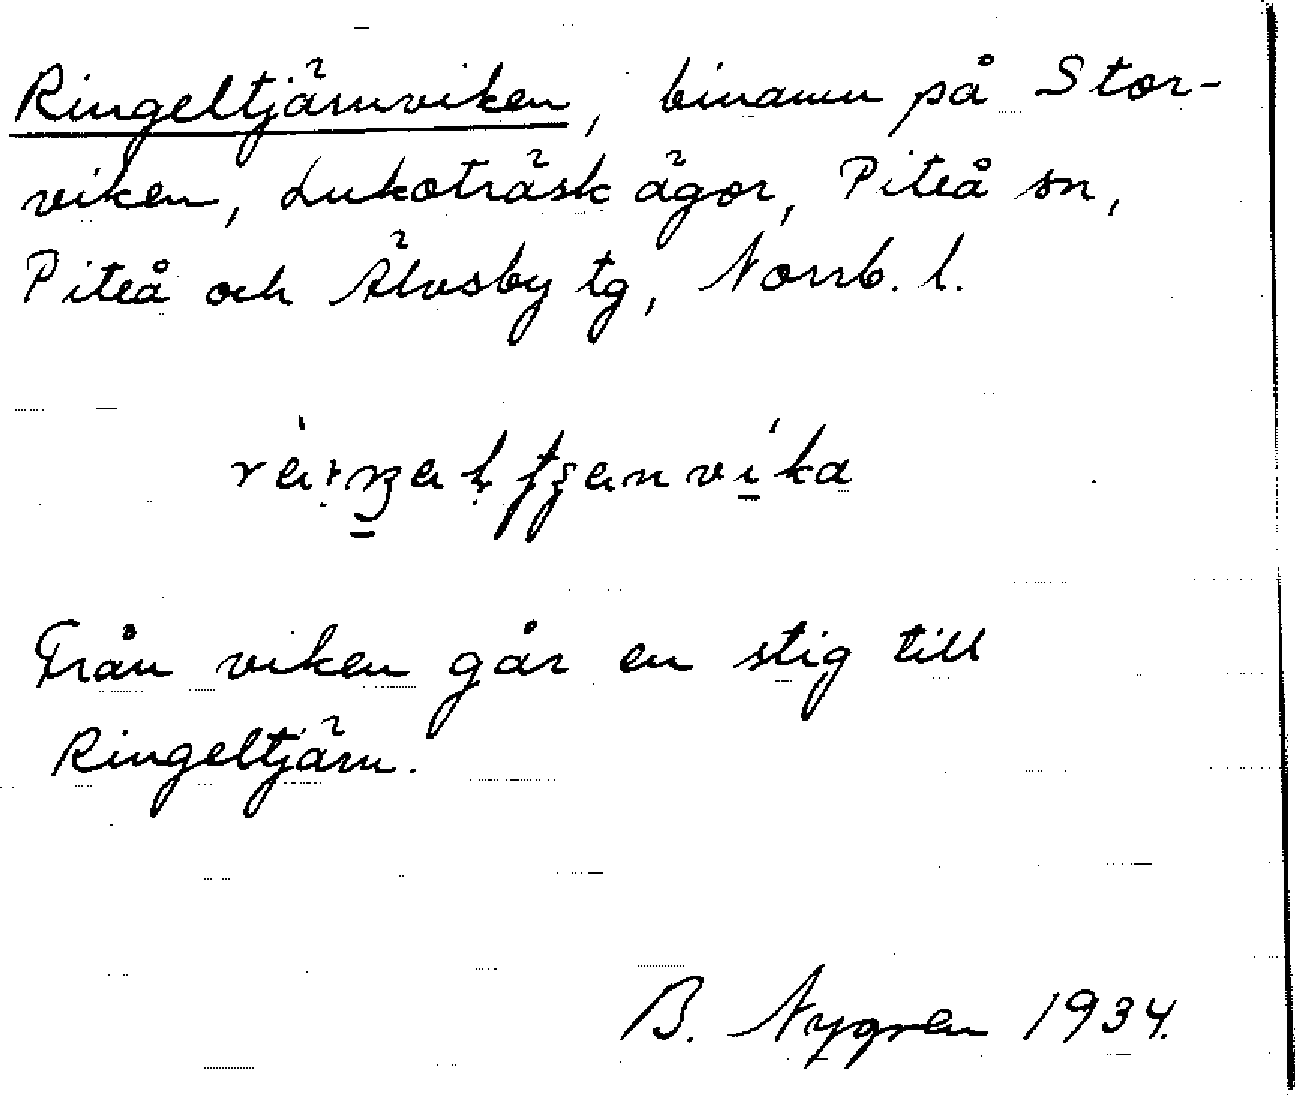 Ringeltjärnviken, binamn på Stor-
viken, Lukoträsk ägor, Piteå sn,
Piteå och Älvsby tg, Norrb. l.
Från viken går en stig till
Ringeltjärn.
B. Nygren 1934.